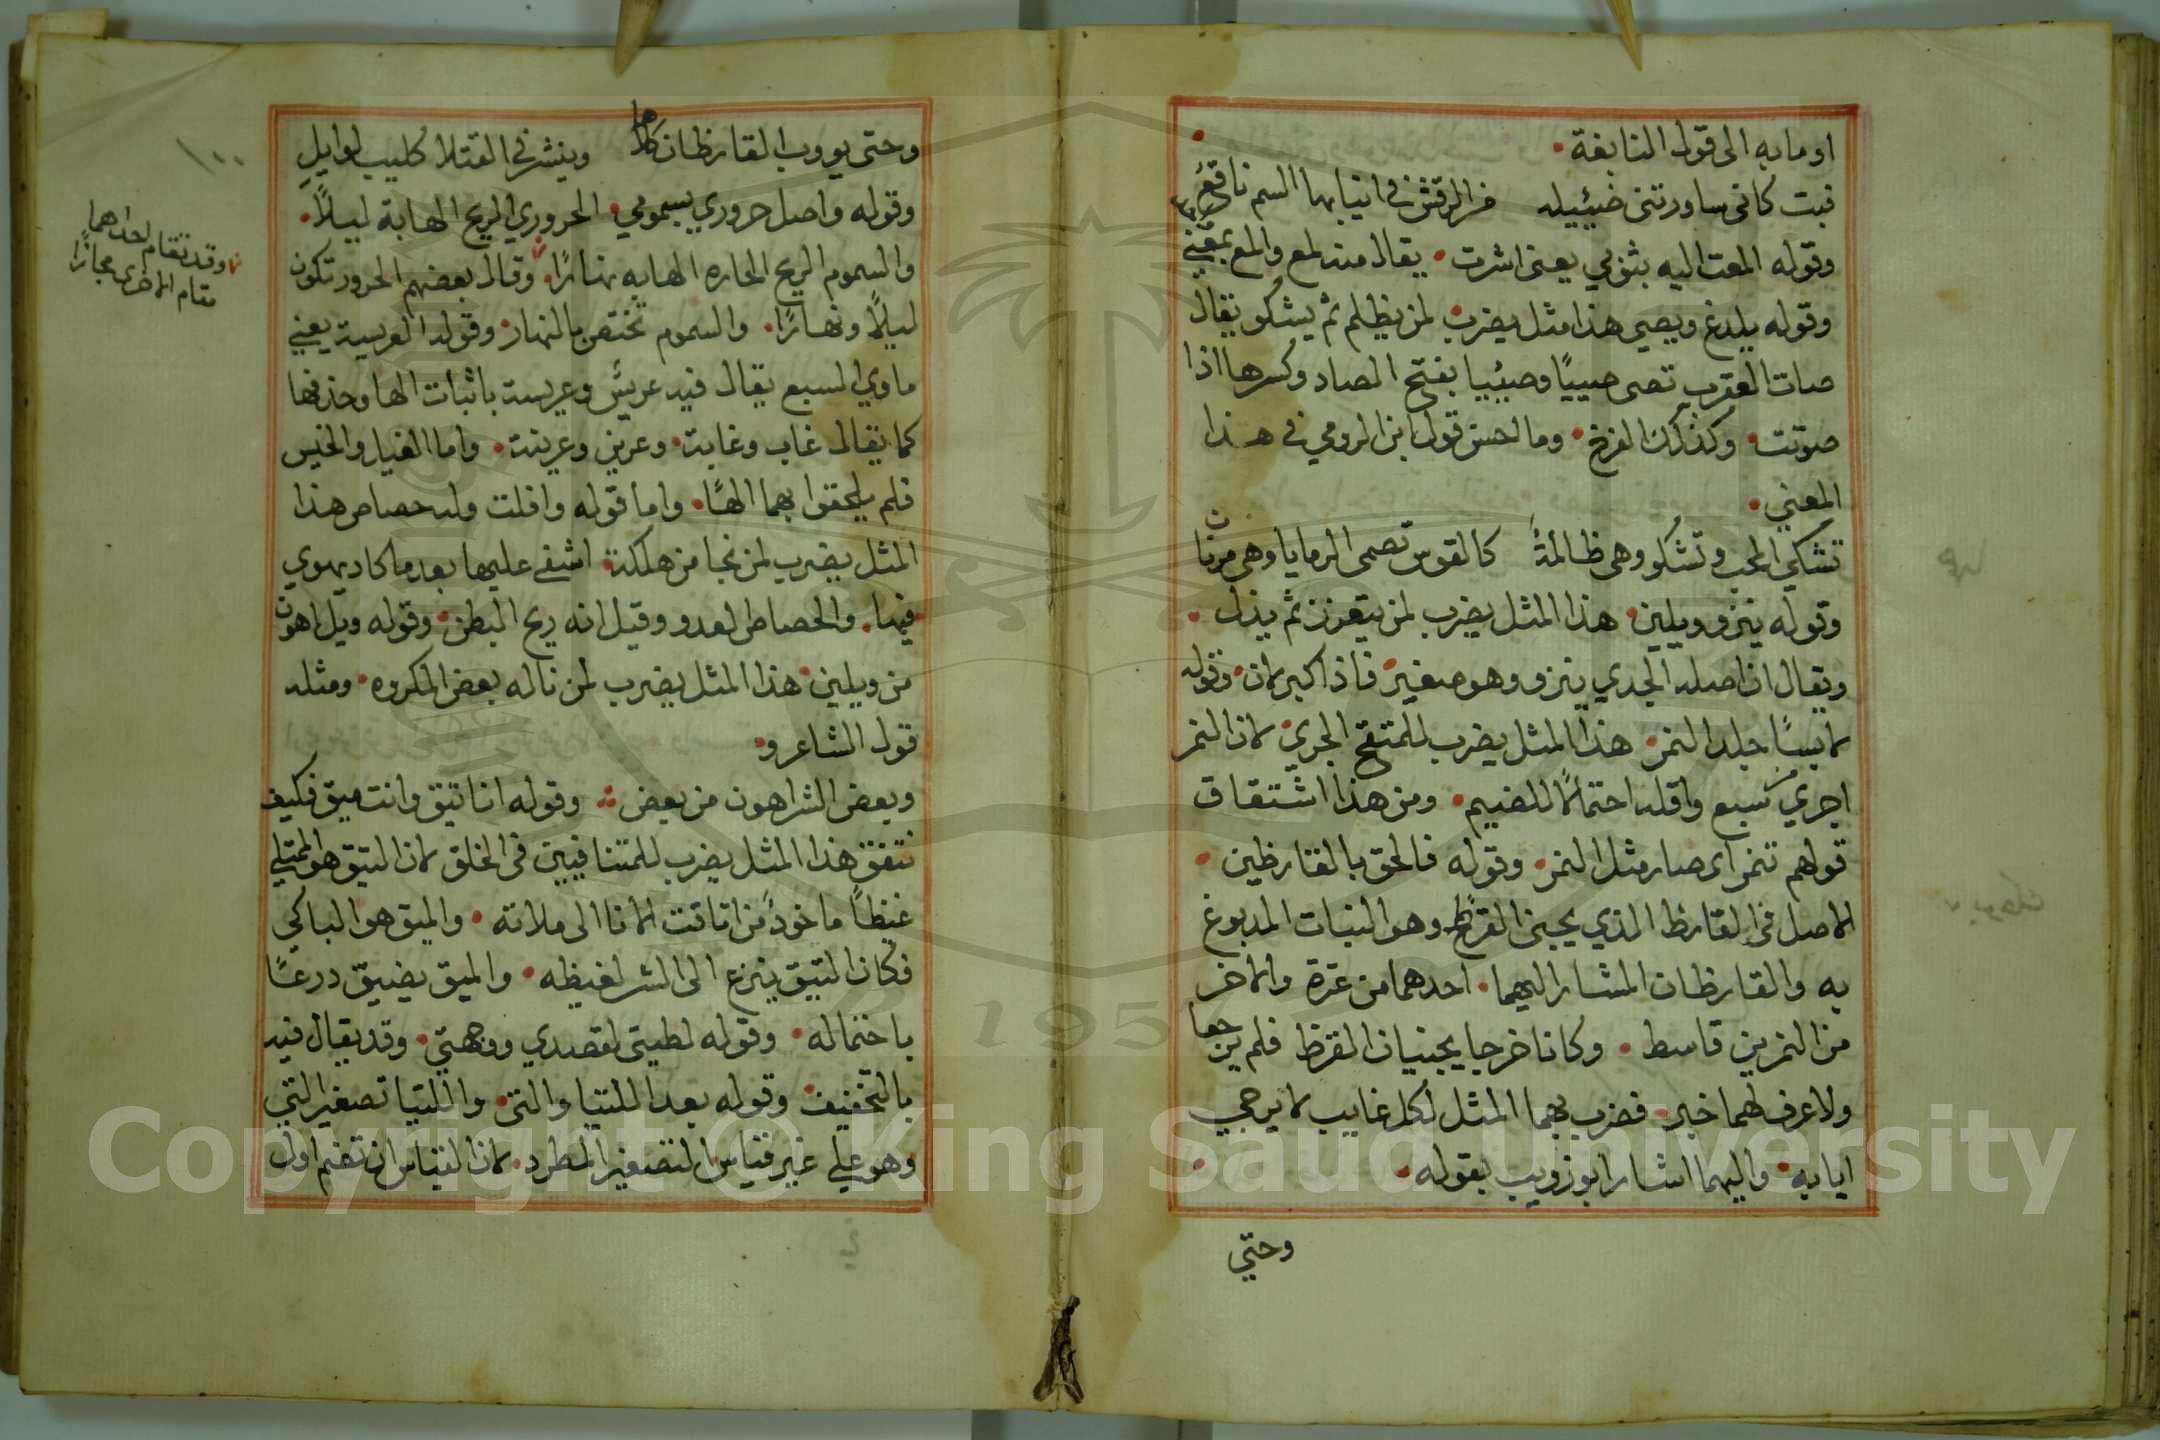 اوما به الى قول النابغة
فبت كانى ساورتنى ضييله من الرقش في انيابها السم ناقع
وقوله المعت اليه بثوبي يعنى اشرت يقال منه لمع والمع بمعني
وقوله يلدغ ويصي هذا مثل يضرب لمن يظلم ثم يشكو يقال
صات العقرب تصى صييًا وصييبا بفتح الصاد وكسرها اذا
صوتت وكذلك الفرخ وما احسن قول ابن الرومي في هذا
المعني
تشكي المحب وتشكو وهى ظالمة كالقوس تصمى الرمايا وهى مرنا ن
وقوله ينزو ويلين هذا المثل يضرب لمن يتعزز ثم يذل
ويقال ان اصله الجدي ينزو وهو صغير فاذا كبر لان وقوله
لابسًا جلد النمر هذا المثل يضرب للمتقح الجري لان النمر
اجري سبع واقله احتمالًا للضيم ومن هذا اشتقاق
قولهم تنمر اى صار مثل النمر وقوله فالحق بالقارظين
الاصل في القارظ الذي يجنى القرظ وهو النبات المدبوغ
به والقارظان المشار اليهما احدهما من عنزة والاخر
من النمر بن قاسط وكانا خرجا يجنيان القرظ فلم يرجعا
ولا عرف لهما خبر فضرب بهما المثل لكل غايب لا يرجي
ايابه واليهما اشار ابو زويب بقوله
وحتي
وحتى يووب القارظان كلاهما وينشر في القتلا كليب لوايل
وقوله واصل حروري بسمومي الحروري الريح الهابة ليلًا
والسموم الريح الحاره الهابه نهارًا وقال بعضهم الحرور تكون
ليلًا ونهارًا والسموم تختص بالنهار وقوله العريسة يعني
ماوي السبع يقال فيه عريس وعريسة باثبات الها وحذفها
كما يقال غاب وغابة وعرين وعرينة واما الغيل والخيس
فلم يلحقوا بهما الهًا واما قوله وافلت وله حصاص هذا
المثل يضرب لمن نجا من هلكة اشفى عليها بعد ما كاد يهوي
فيها والحصاص العدو وقيل انه ريح البطن وقوله ويل اهون
من ويلين هذا المثل يضرب لمن ناله بعض المكروه ومثله
قول الشاعر و
وبعض الشر اهون من بعض وقوله انا تيق وانت ميق فكيف
نتفق هذا المثل يضرب للمتنافيين في الخلق لان التيق هو الممتلي
غيظًا ماخوذ من اتاقت الانا اى ملاته والميق هو الباكي
فكان التيق ينزع الى الشر لغيظه والميق يضيق درعًا
باحتماله وقوله لطيتى لقصدي ووجهتي وقد يقال فيه
بالتخفيف وقوله بعد اللتيا والتى واللتيا تصغير التي
وهو علي غير قياس التصغير المطرد لان القياس ان تضم اول
١٠٠
وقد تقام احداهما
مقام الاخرى مجازًا
Copyright © King Saud University
1957